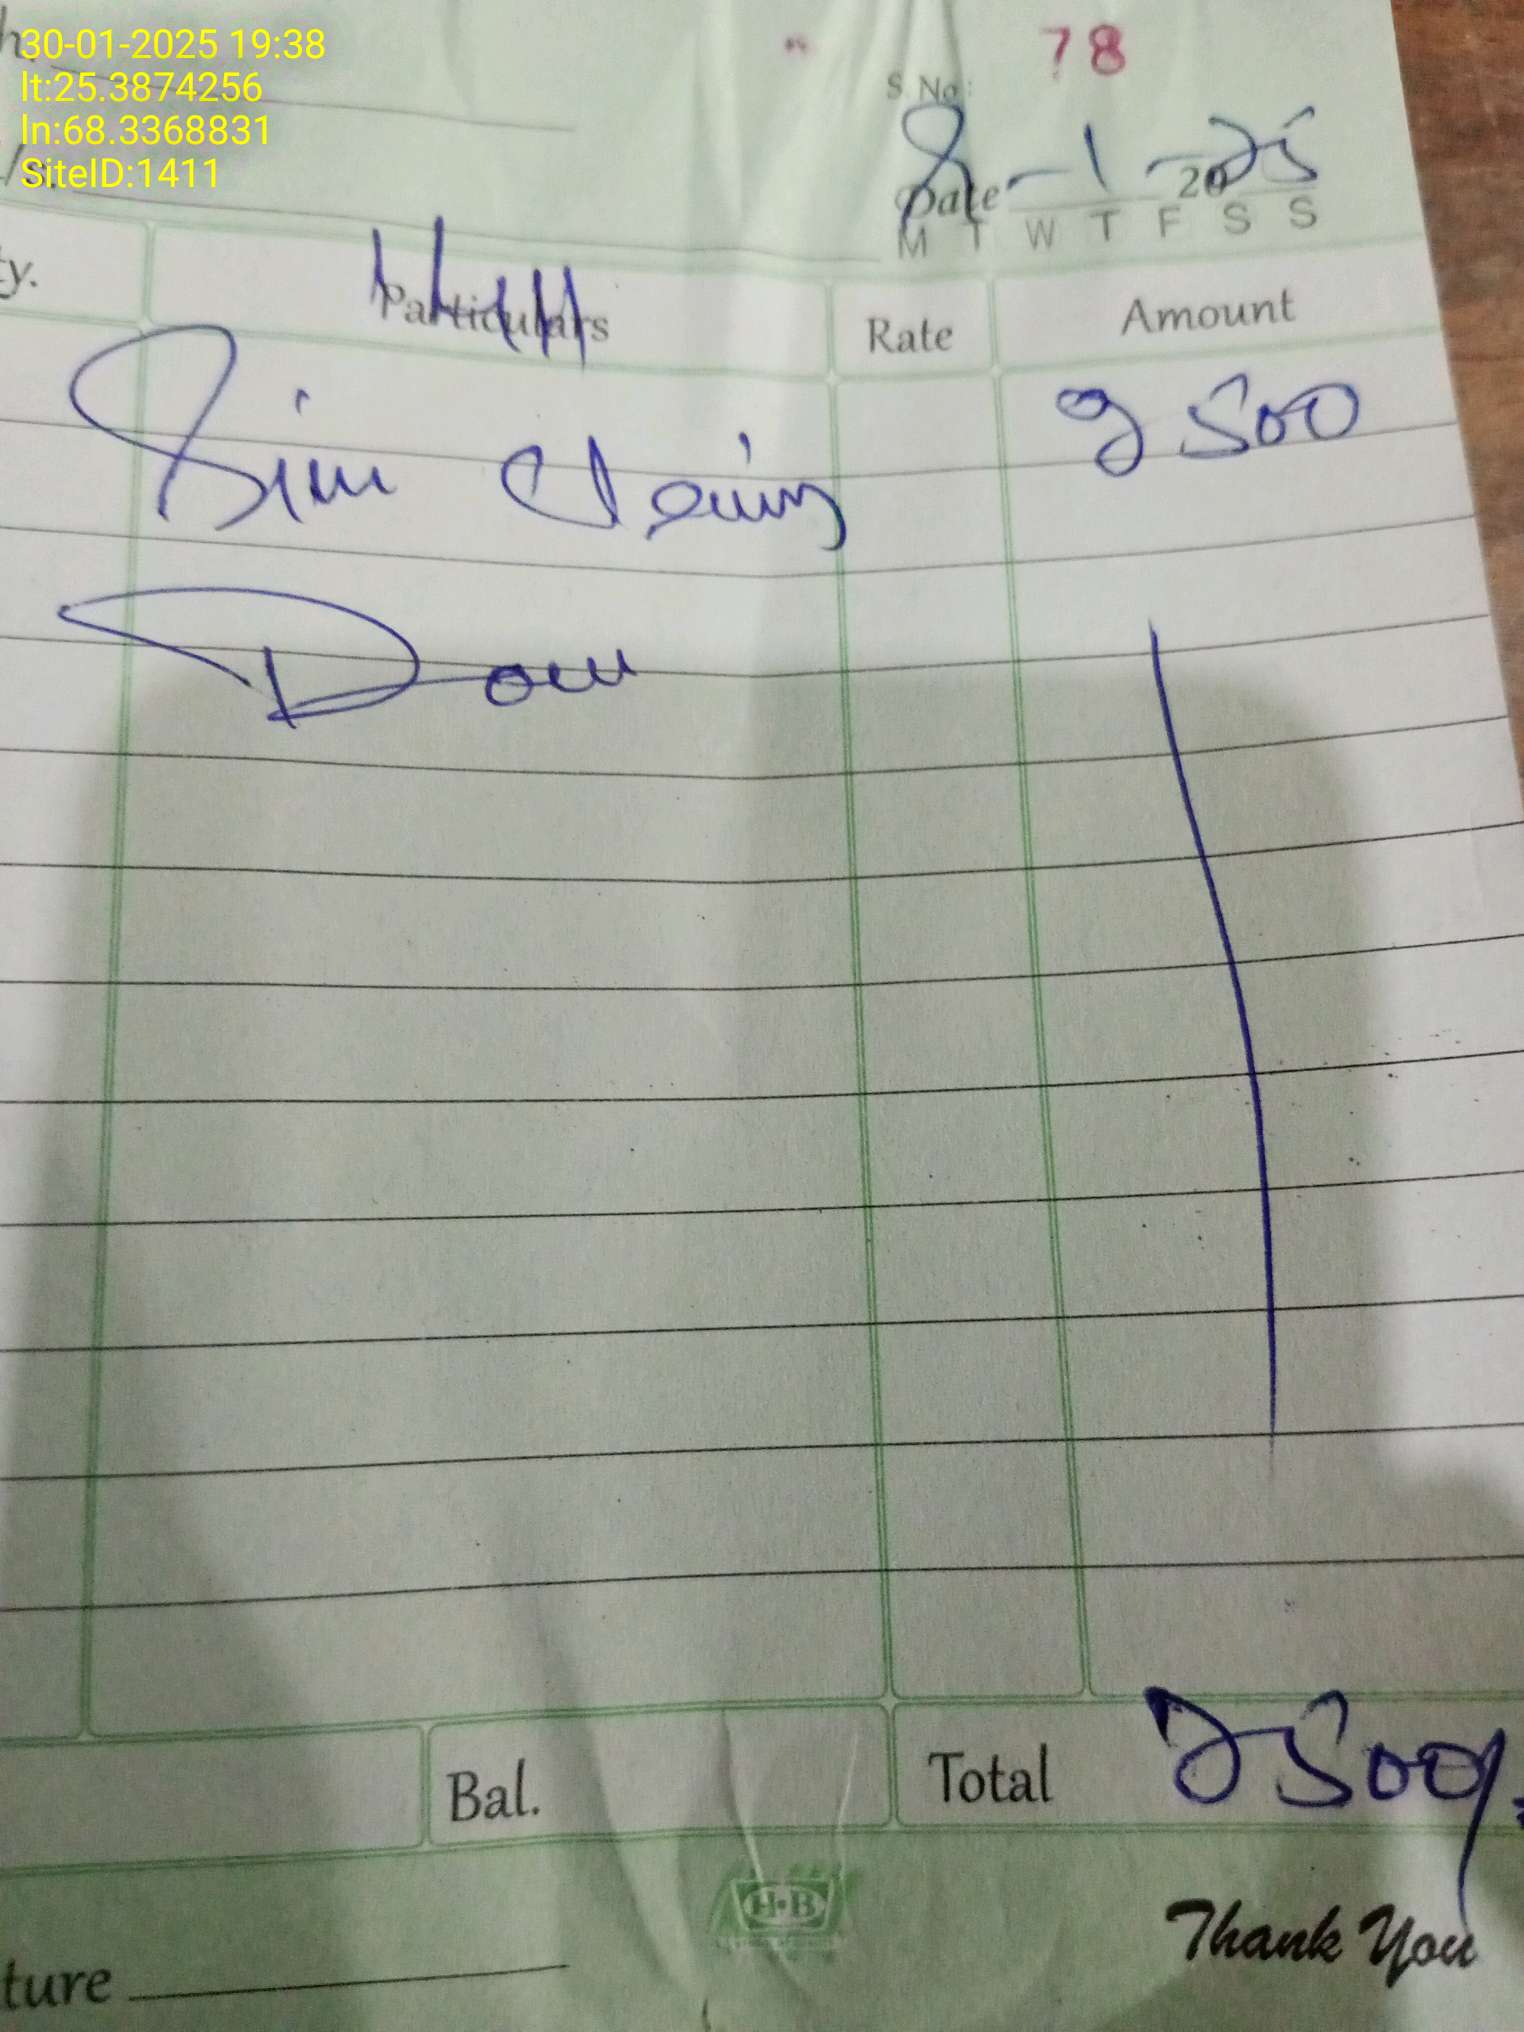 30-01-2025 19:38
lt:25.3874256
ln:68.3368831
SiteID:1411
78
S.No:
Date 8-1-2025
M T W T F S S
ty. Particulars Rate Amount
1411
Sim 2500
Total 2500/=
Bal.
Thank You
H·B
ture